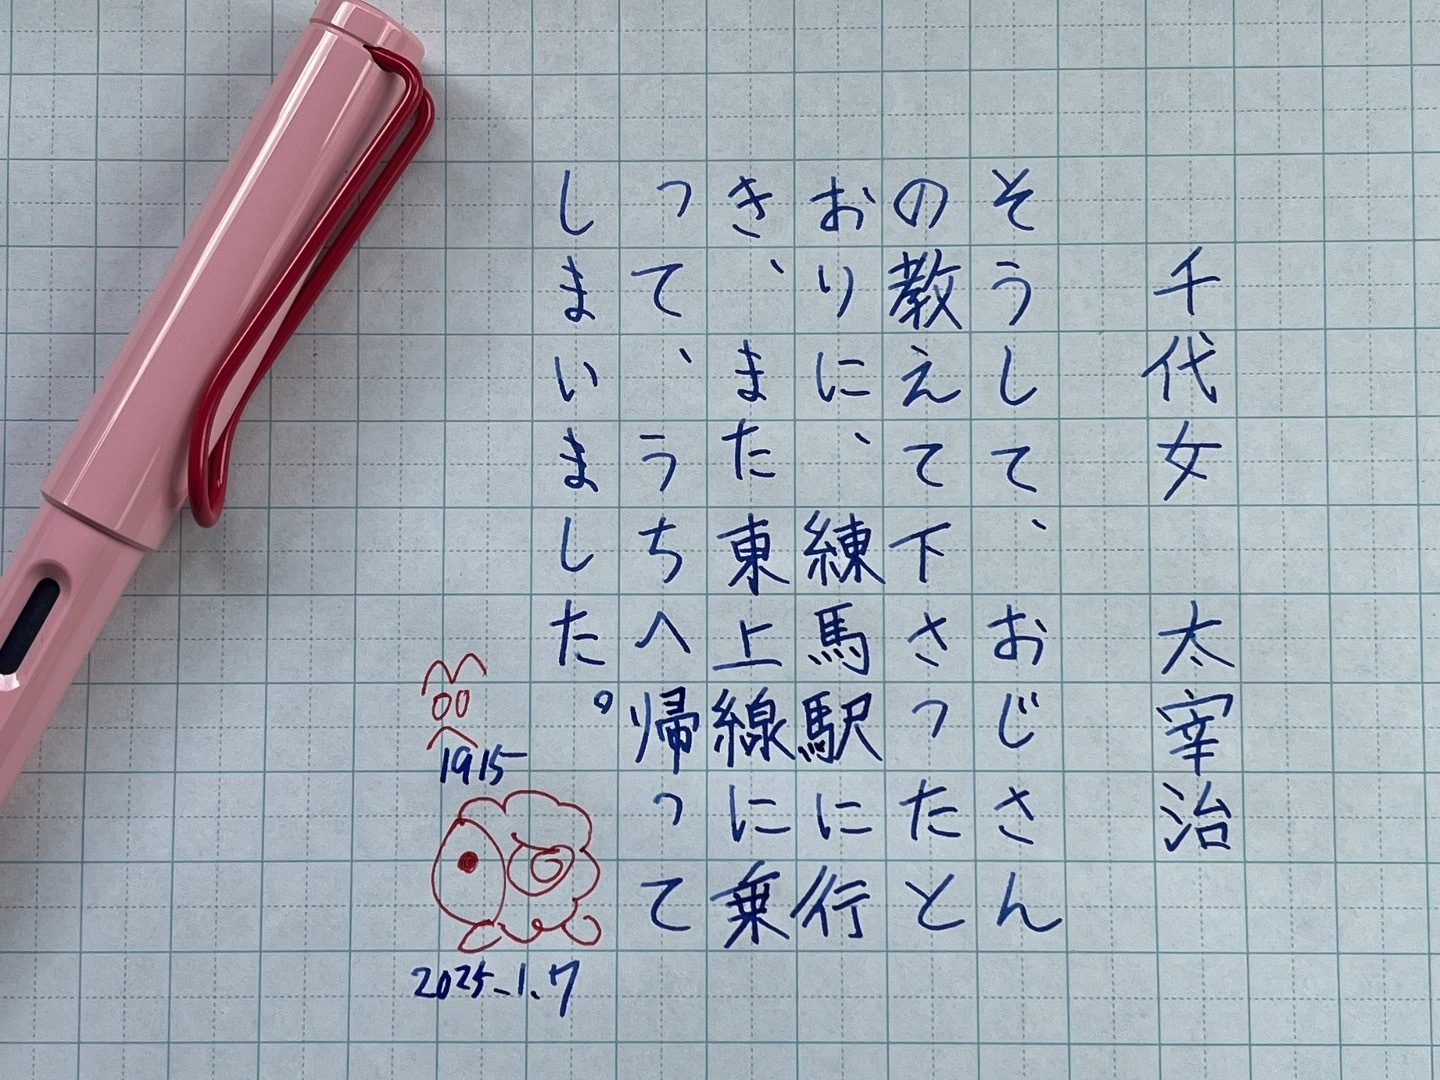 千代女　太宰治
そうして、おじさん
の教えて下さつたと
おりに、練馬駅に行
き、また東上線に乗
つて、うちへ帰つて
しまいました。
1915
2025.1.7